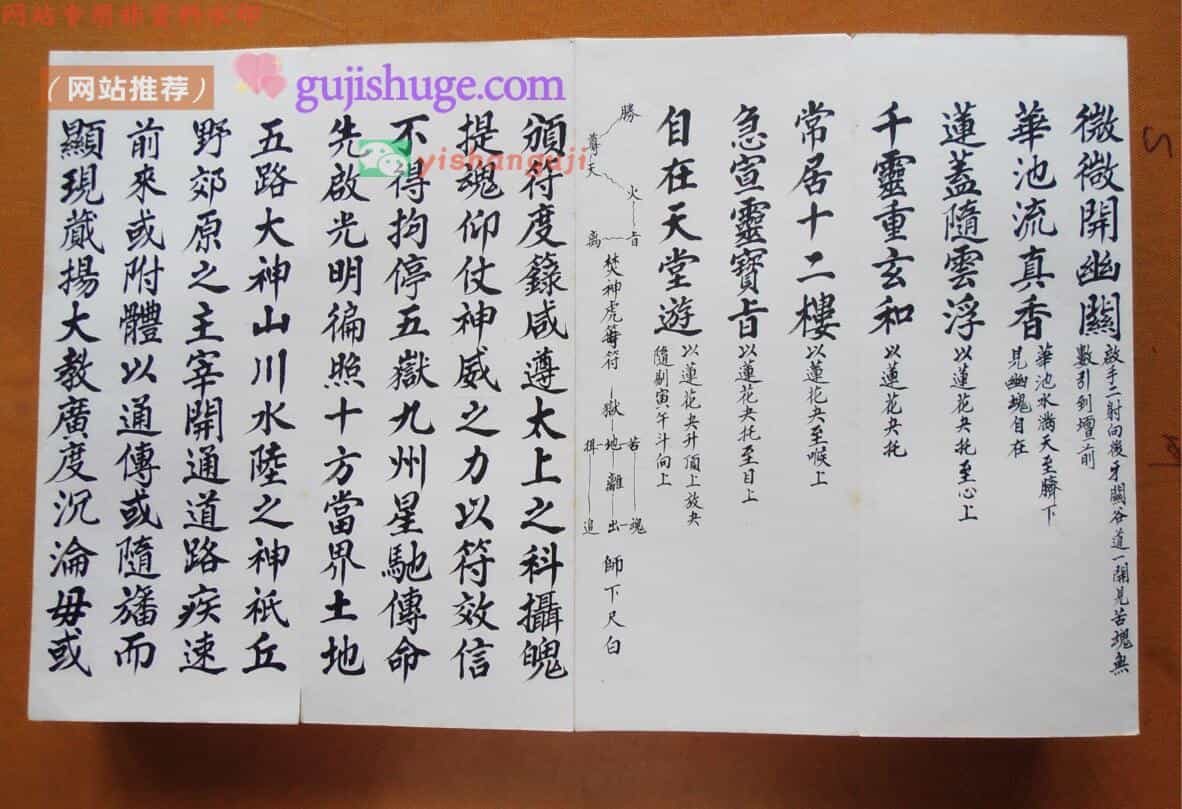 网站专用非资料水印
（网站推荐）
gujishuge.com
yishanguji
微微開幽關
啟手二射向後牙關谷道一開見苦魂無
數引到壇前
華池流真香
華池水滿天至臍下
見幽魂自在
蓮蓋隨雲浮
以蓮花夬托至心上
千靈重玄和
以蓮花夬托
常居十二樓
以蓮花夬至喉上
急宣靈寶旨
以蓮花夬托至目上
自在天堂遊
以蓮花夬升頂上放夬
隨剔寅午斗向上
勝
尊
天
火
离
音
焚神虎等符
獄
揖 地 苦
離
追 出 魂
師下尺白
頒符度籙咸遵太上之科攝魄
提魂仰仗神威之力以符效信
不得拘停五嶽九州星馳傳命
先啟光明徧照十方當界土地
五路大神山川水陸之神祇丘
野郊原之主宰開通道路疾速
前來或附體以通傳或隨旛而
顯現蕆揚大教廣度沉淪毋或